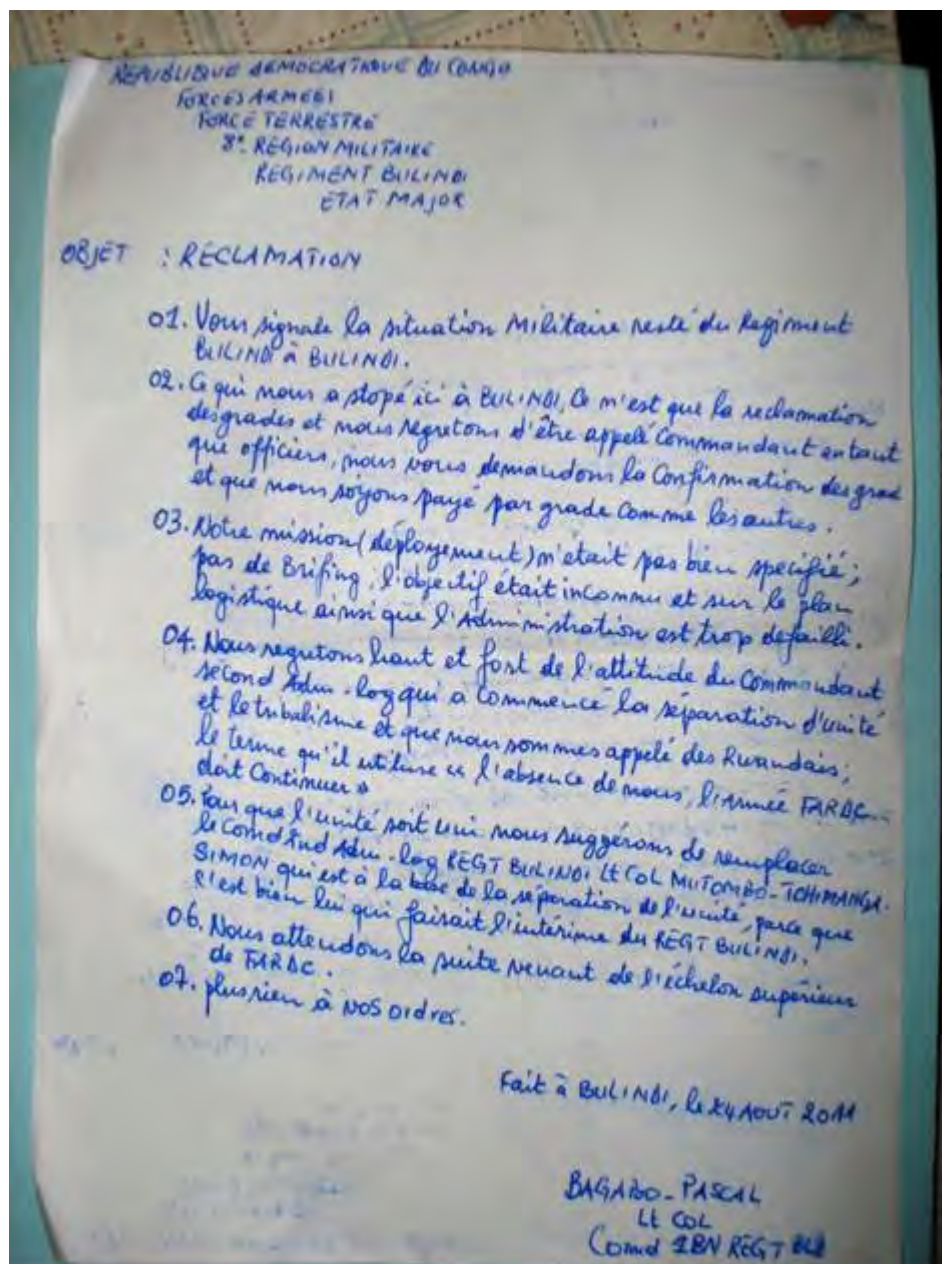 REPUBLIQUE DEMOCRATIQUE DU CONGO
FORCES ARMEES
FORCE TERRESTRE
8e. REGION MILITAIRE
REGIMENT BULINDI
ETAT MAJOR
OBJET : RECLAMATION
01. Vous signale la situation Militaire resté du Regiment
BULINDI à BULINDI.
02. Ce qui nous a stopé ici à BULINDI, Ce n'est que la reclamation
des grades et nous regretons d'être appelé Commandant entant
que officiers, nous vous demandons la Confirmation des grad
et que nous soyons payé par grade comme les autres.
03. Notre mission (déployement) n'était pas bien specifié;
pas de Brifing, l'objectif était inconnu et sur le plan
logistique ainsi que l'Administration est trop defailli.
04. Nous regretons haut et fort de l'attitude du Commandant
second Adm-log qui a commencé la séparation d'unité
et le tribalisme et que nous sommes appelé des Rwandais;
le terme qu'il utilise « l'absence de nous, l'Armée FARDC
doit Continuer »
05. Pour que l'unité soit uni nous suggérons de remplacer
le Comd 2nd Adm-log REGT BULINDI Lt COL MUTOMBO-TCHIMANGA-
SIMON qui est à la base de la séparation de l'unité, parce que
c'est bien lui qui faisait l'intérime du REGT BULINDI.
06. Nous attendons la suite venant de l'échelon supérieur
de FARDC.
07. plus rien à nos ordres.
Fait à BULINDI, le 24 AOUT 2011
BAGABO-PASCAL
Lt COL
Comd 1BN REGT